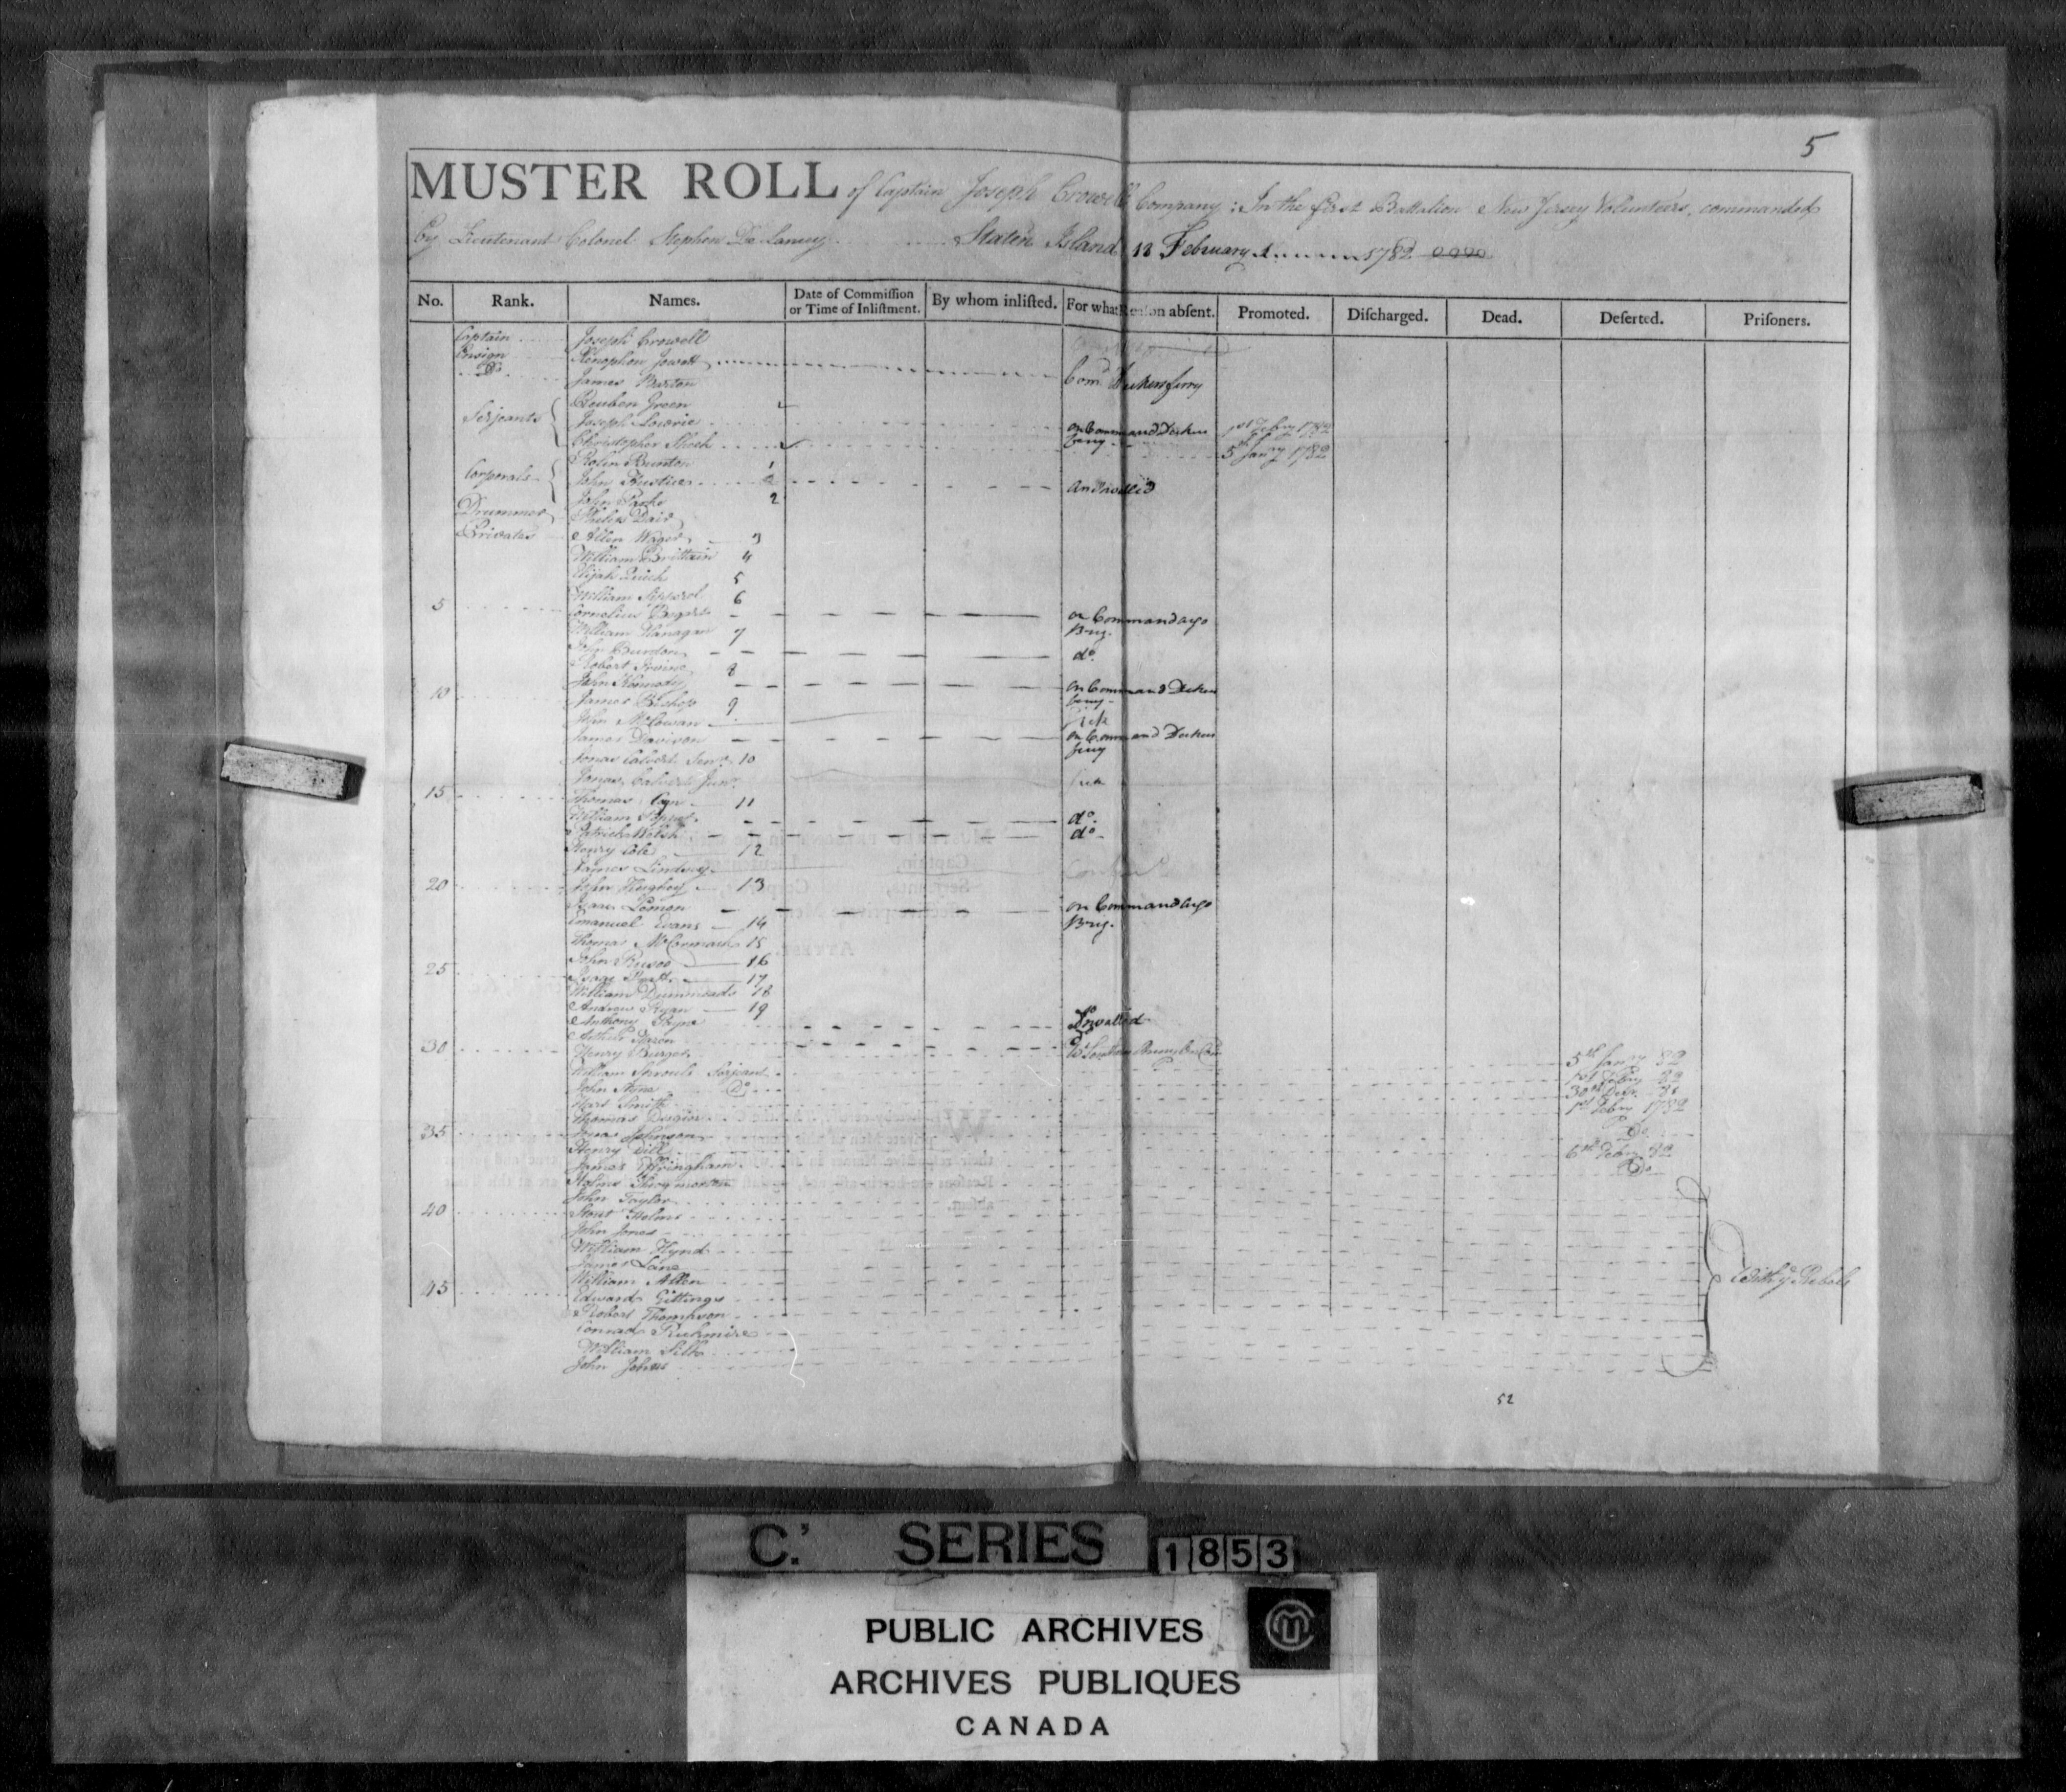 5
MUSTER ROLL of Captain Joseph Crowell Company: In the first Battalion New Jersey Volunteers, commanded
by Lieutenant Colonel Stephen De Lancey Staten Island 18 February 1782
No. Rank. Names. Date of Commiſſion or Time of Inliſtment. By whom inliſted. For what Reaſon absent. Promoted. Diſcharged. Dead. Deſerted. Priſoners.
Captain Joseph Crowell
Ensign Xenophon Jowett
Do James Barton Comd Deckers ferry
Serjeants Reuben Green
Joseph Lowrie on Command Deckers ferry 1st Febry 1782
Christopher Shock 5 Janry 1782
Corporals Rolin Burton 1
John Bustice 2 an Invalid
John Parke 2
Drummer David
Privates Allen Wager 3
William Brittain 4
Elijah 5
William 6
5 Cornelius on Command arg
William Flanagan 7 Brig.
John Burdon do.
Robert Irvine 8
10 John Kennedy on Command Decker
James Bishop 9 ferry
John McCowan Sick
James Davison on Command Deckers ferry
Jonas Calvert Senr. 10
Jonas Calvert Junr. Sick
15 Thomas 11
William do.
Patrick Welsh do
Henry Cole 12
James Lindsey
20 John Hughey 13
Isaac Lemon on Command
Emanuel Evans 14 Brig.
Thomas McCormack 15
John 16
25 Isaac 17
William 18
Andrew Ryan 19
Anthony Invalid
Arthur
30 Henry Burges
William Sprouls Serjeant 5th Janry 82
John Do 1st Febry 82
Smith 30th Decr. 81
Thomas 1st Febry 1782
35 Johnson Do
Henry Dill 6th Febry 82
James Effringham Do
Holms Throgmorton
John Taylor
40 Stout Helms
John Jones
William Hynd
James Lane
William Allen
45 Edward Gittings
Robert Thompson
Conrad
William Silk
John
With ye Rebels
52
C.' SERIES 1853
PUBLIC ARCHIVES
ARCHIVES PUBLIQUES
CANADA